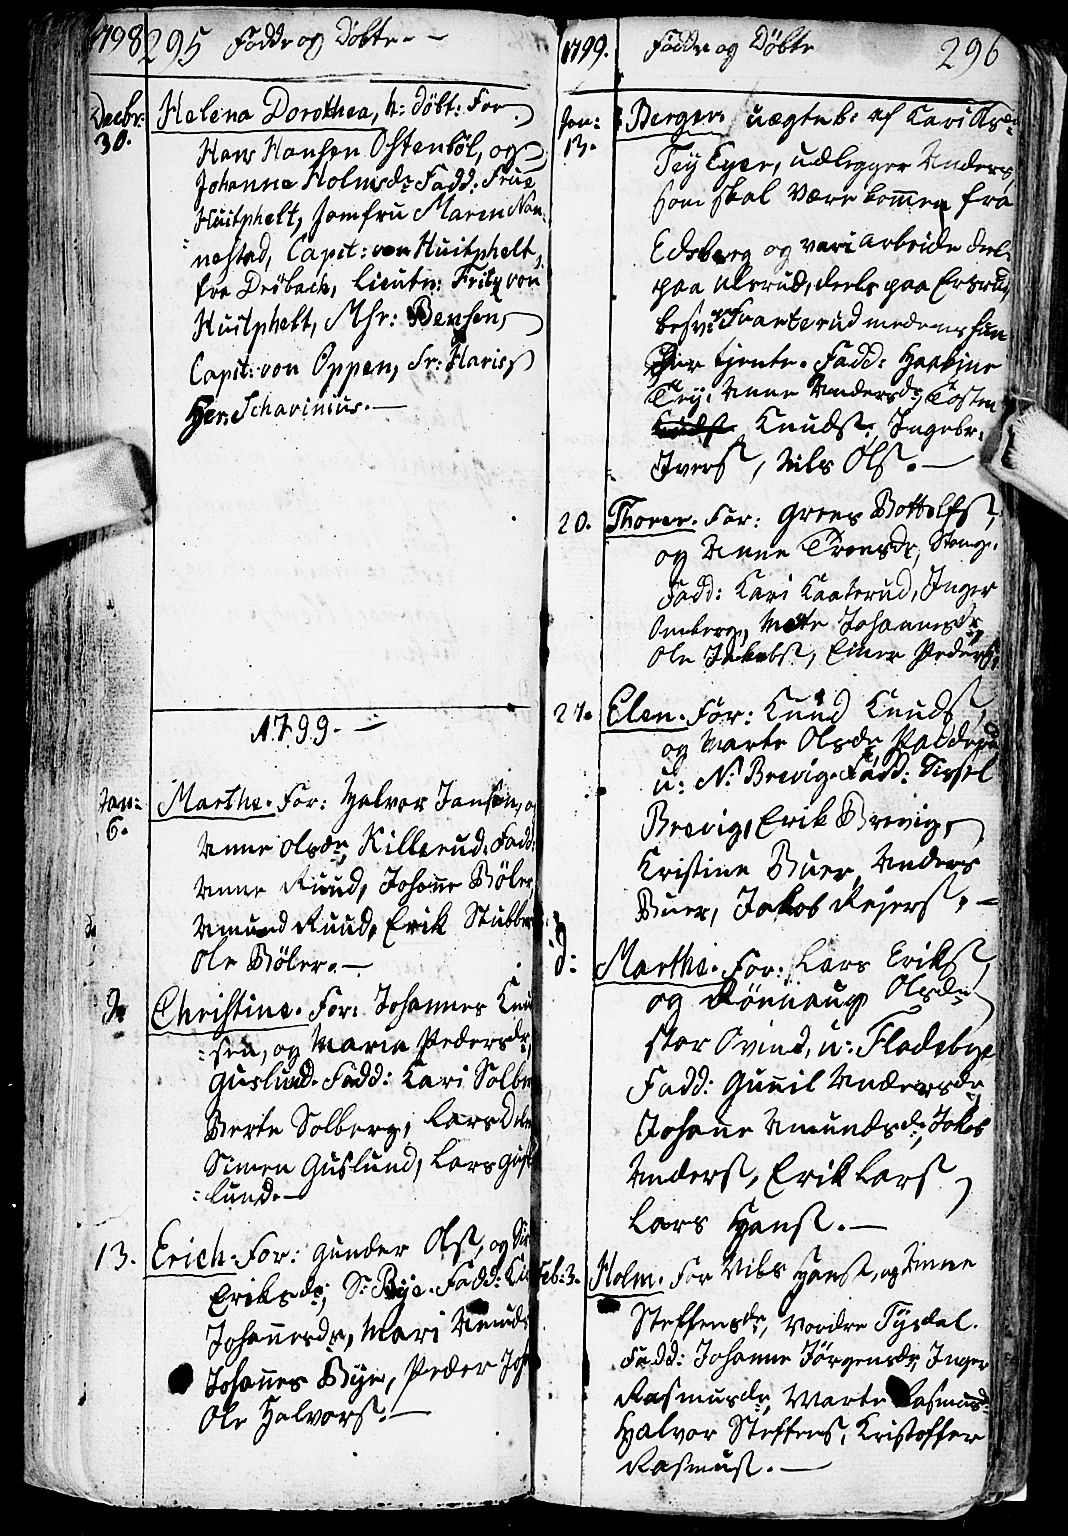 1798 295 Födde og Döbte.
Decbr: 30. Helena Dorothea, h: döbt: For
Hans Hansen Ostenböl, og
Johanna Holmsdr Fadd: Frue
Huitphelt, Jomfru Maren Non-
nestad, Capit: von Huitphelt,
fra Dröbach, Lieutn: Fritz von
Huitphelt, Mhr: Bensen,
Capit: von Oppen, Sr: Haris,
Her: Scharinius.
1799.
Jan: 6. Marthe. For: Halvor Jansen, og
Anne Olsdr, Killerud. Fadd:
Anne Ruud, Johane Böler
Amund Ruud, Erik Stubber
Ole Böler.
Christine. For: Johannes Knu
sen, og Maria Pedersdr,
Guslund. Fadd: Kari Solbe
Berte Solberg, Lars
Simen Guslund, Lars Gus
lund.
13. Erich. For: Gunder Ols, og Si
Eriksdr, S: Bye. Fadd:
Johannesdr, Mari Amunds
Johannes Bye, Peder Joh
Ole Halvors.
1799. Födde og Döbte 296
Jan: 13. Berger. uægte b: af Kari
Tey Eyer, udlegger Anders,
som skal være kommen fra
Edsberg og vari arbeide deels
paa Ulsrud, deels paa Ersrud,
besv: Svarterud medens hun
der tjente. Fadd: Haagine
Tey, Anne Andersdr, Tosten
Knuds, Ingebr.
Ivers, Nils Ols.
20. Thorer. For: Grees Bottolfs,
og Anne Treesdr, Stange.
Fadd: Kari Kaaterud, Inger
Omberg, Mette Johannesdr,
Ole Jakobs, Einer Peders.
27. Elen. For: Knud Knuds
og Marte Olsdr Padde
u: N: Brevig. Fadd: Sissel
Brevig, Erik Brevig,
Kristine Buer, Anders
Buer, Jakob Rejers.
d: Marthe. For: Lars Eriks,
og Rönnaug Olsdr,
stor Ovind, u: Fladebye
Fadd: Gunil Andersdr,
Johane Amundsdr, Jakob
Anders, Erik Lars
Lars Hans.
Feb: 3. Holm. For Nils Hans, og Anne
Steffensdr, Nordre Tysdal.
Fadd: Johanne Jörgensdr, Inger
Rasmusdr, Marte Rasmusd:
Halvor Steffens, Kristoffer
Rasmus.